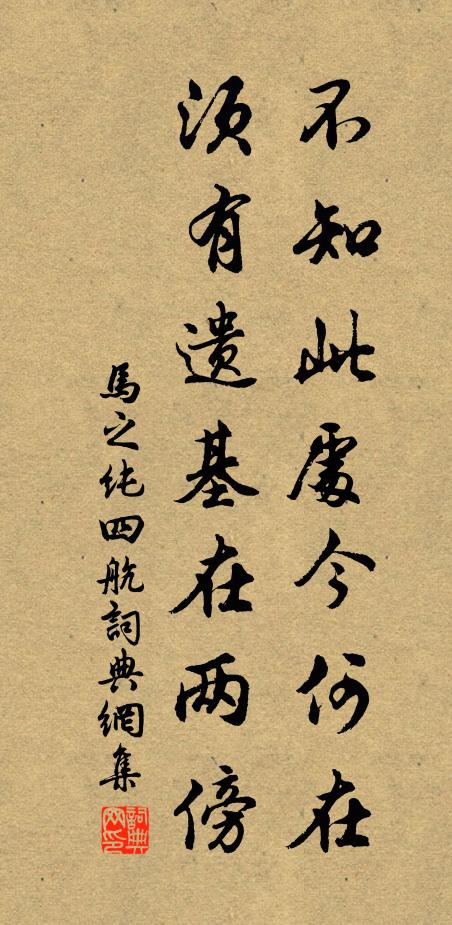 不知此處今何在
須有遺基在两傍
馬之純四航詞典網集
詞典网印